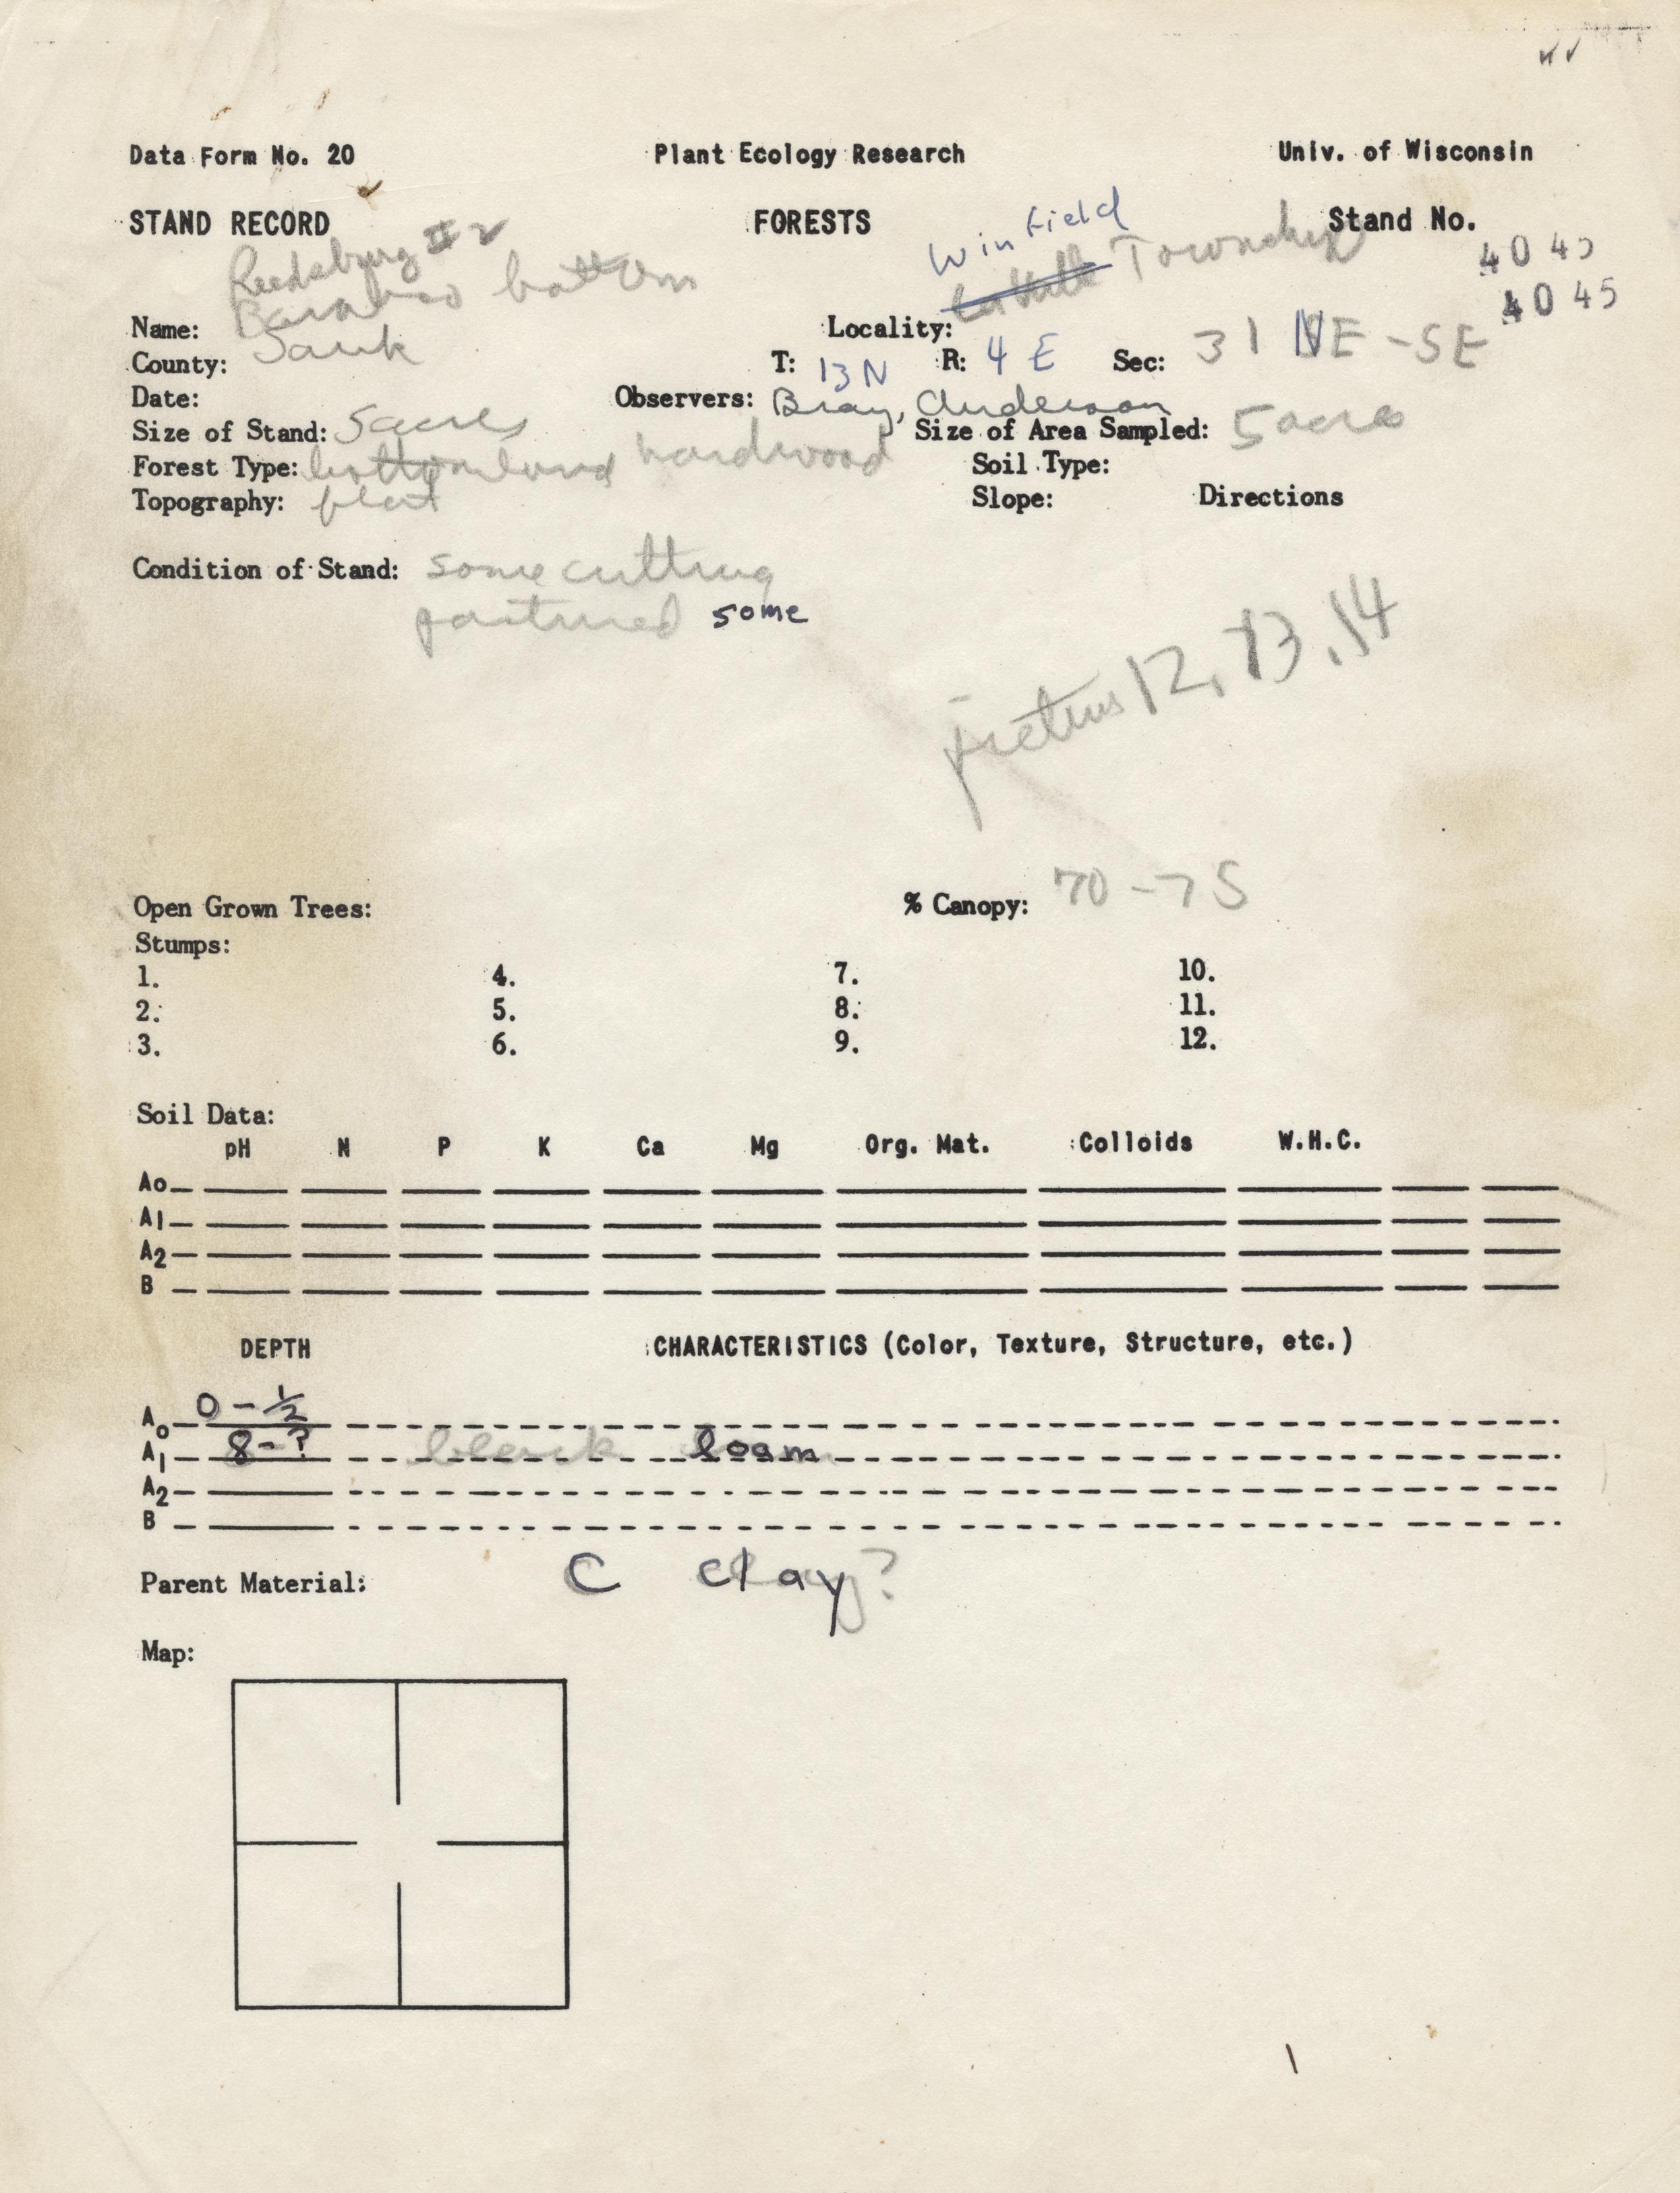 Data Form No. 20 Plant Ecology Research Univ. of Wisconsin
STAND RECORD FORESTS Stand No.
Reedsburg #2 Winfield Township 4045
Name: Baraboo bottom Locality: 4045
County: Sauk T: 13N R: 4E Sec: 31 NE-SE
Date: Observers: Bray, Anderson
Size of Stand: 5 acres Size of Area Sampled: 5 acres
Forest Type: bottomland hardwood Soil Type:
Topography: flat Slope: Directions
Condition of Stand: some cutting
pastured some
12, 13, 14
Open Grown Trees: % Canopy: 70-75
Stumps:
1. 4. 7. 10.
2. 5. 8. 11.
3. 6. 9. 12.
Soil Data:
pH N P K Ca Mg Org. Mat. Colloids W.H.C.
Ao
A1
A2
B
DEPTH CHARACTERISTICS (Color, Texture, Structure, etc.)
Ao 0-1/2
A1 8-? black loam
A2
B
Parent Material: C clay?
Map: